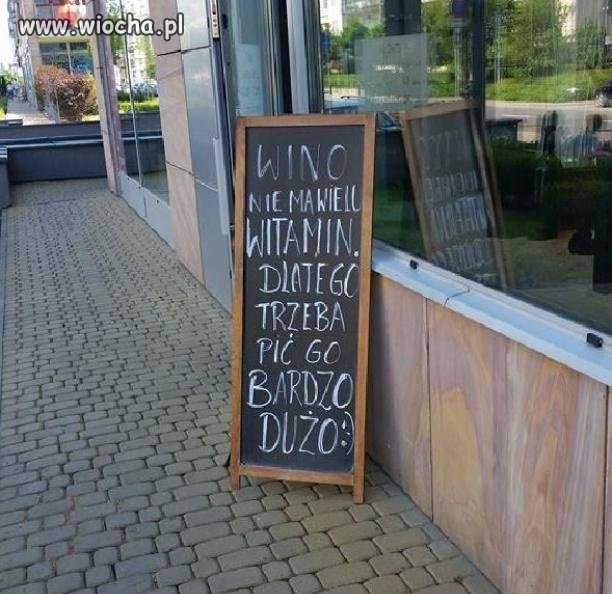 www.wiocha.pl
WINO
NIE MA WIELU
WITAMIN.
DLATEGO
TRZEBA
PIĆ GO
BARDZO
DUŻO:)